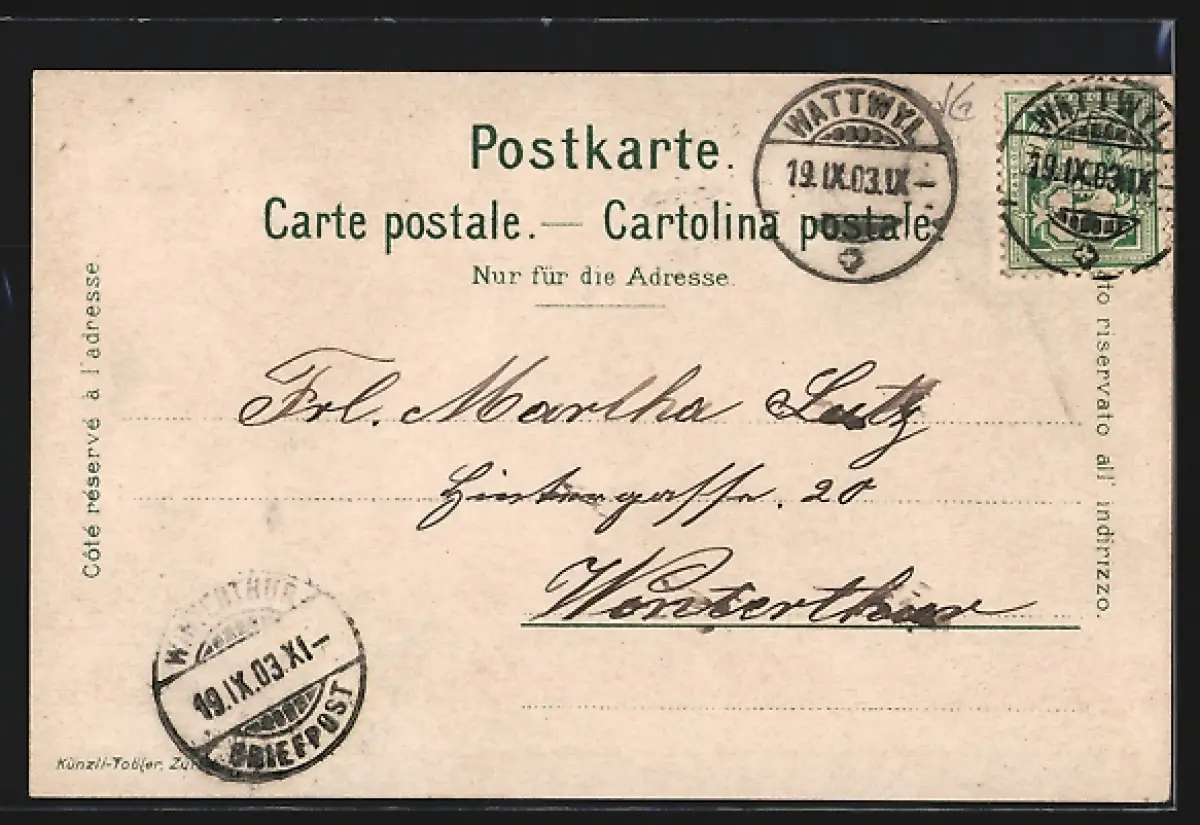 Postkarte.
WATTWYL
19.IX.03.IX–
WATTWYL
19.IX.03.IX
Carte postale.— Cartolina postale
Nur für die Adresse.
Côté réservé à l'adresse.
to riservato all' indirizzo.
Frl. Martha Lutz
Hintergasse. 20
Winterthur
WINTERTHUR
19.IX.03.XI–
BRIEFPOST
Künzli-Tobler, Zür